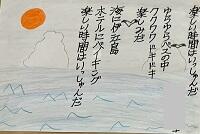 楽しい時間はいっしゅんだ
ゆらゆらバスの中
ワクワクドキドキ
楽しみだ
海に伊江島
ホテルにバイキング
楽しい時間はいっしゅんだ